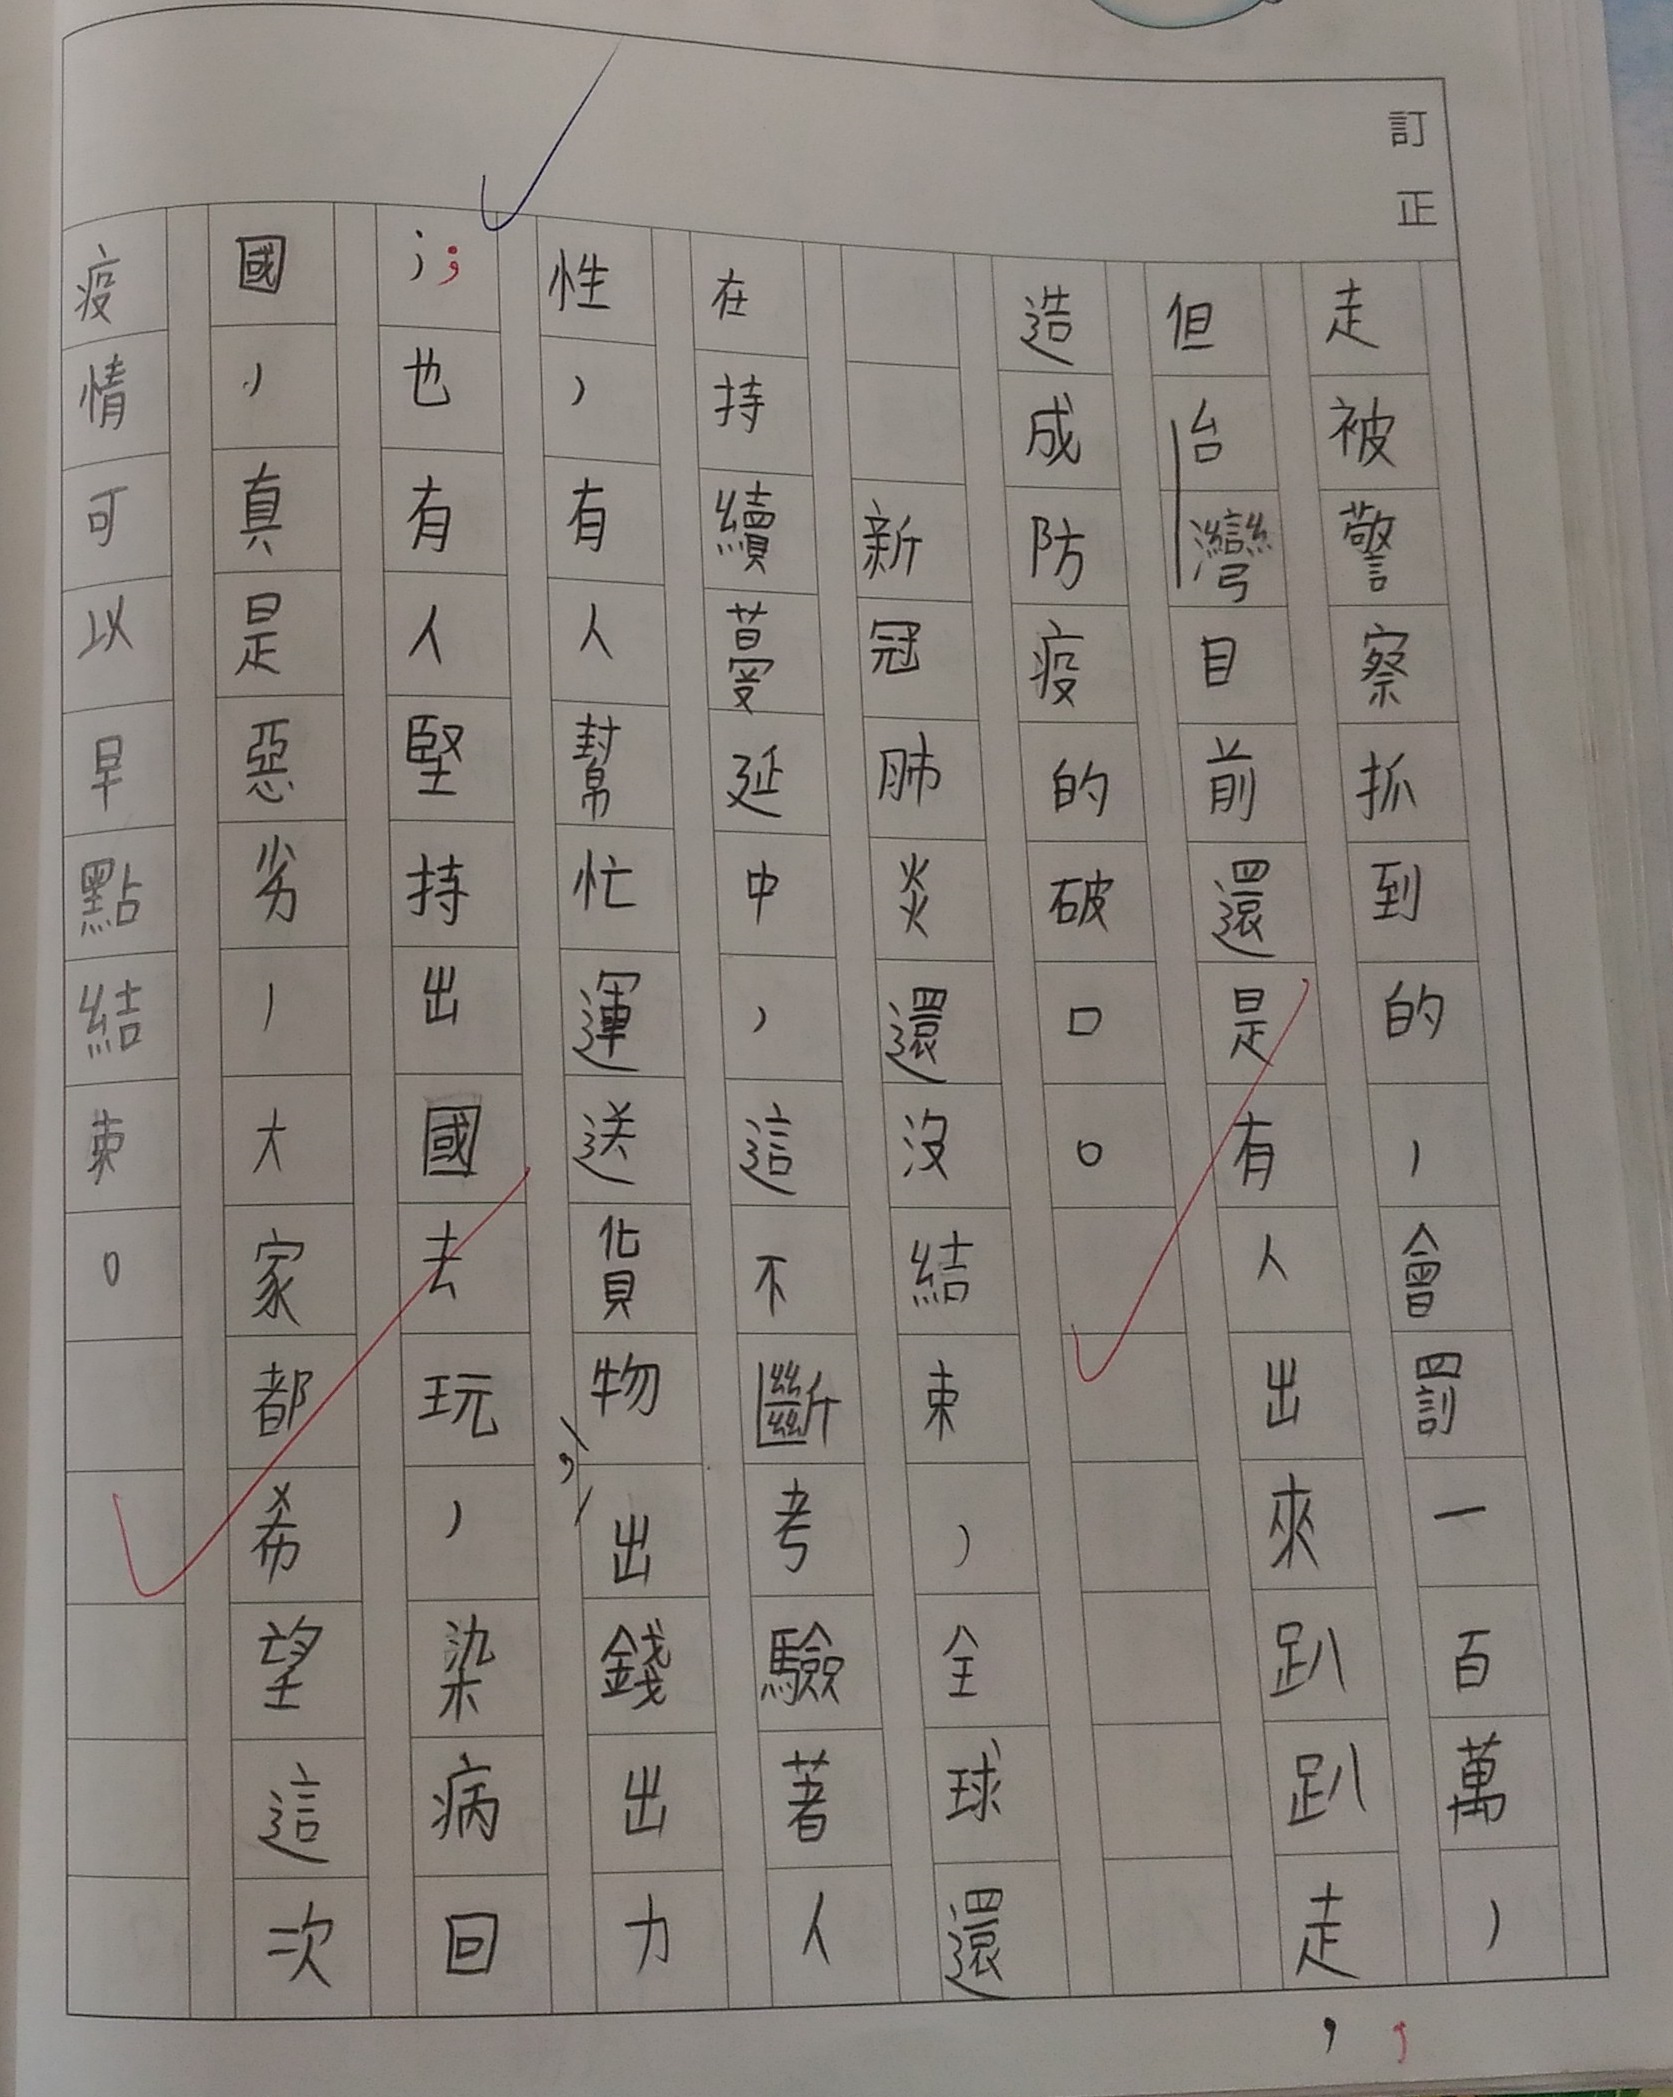 訂正
走被警察抓到的，會罰一百萬，
但台灣目前還是有人出來趴趴走，
造成防疫的破口。
新冠肺炎還沒結束，全球還
在持續蔓延中，這不斷考驗著人
性，有人幫忙運送貨物，出錢出力
；也有人堅持出國去玩，染病回
國，真是惡劣，大家都希望這次
疫情可以早點結束。